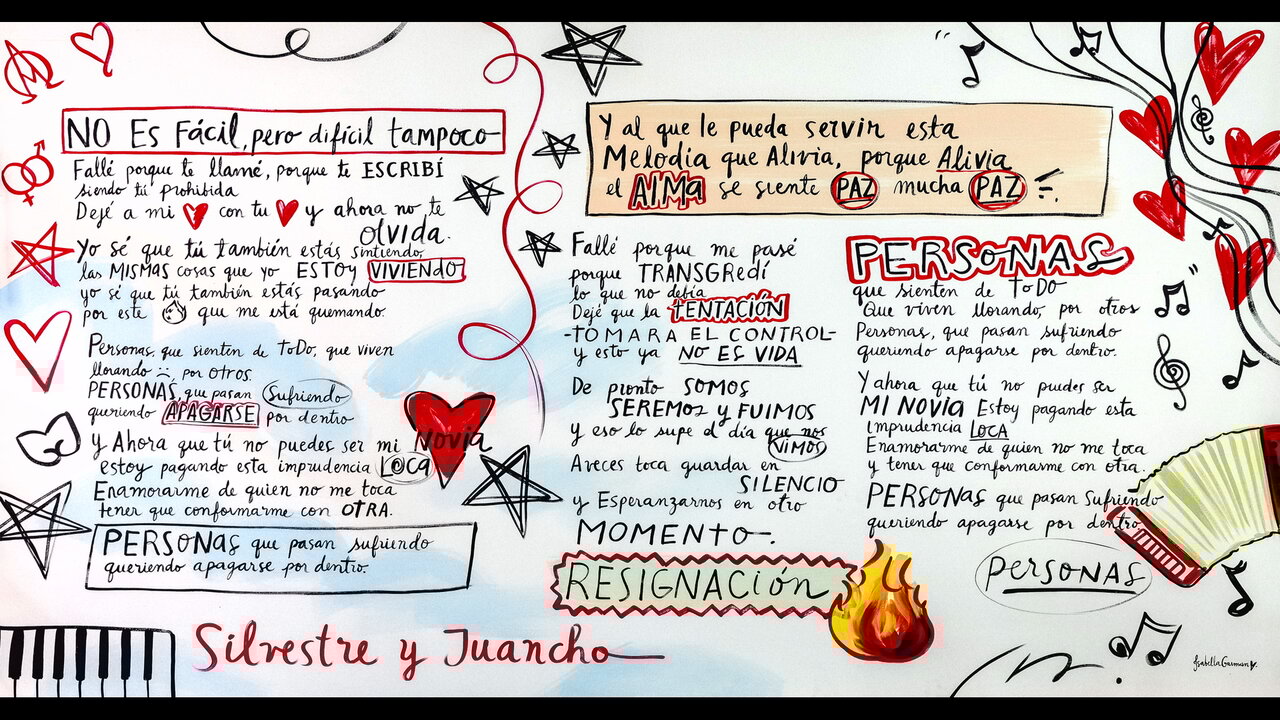 NO Es Fácil, pero difícil tampoco
Fallé porque te llamé, porque te ESCRIBÍ
siendo tú prohibida
Dejé a mi con tu y ahora no te
olvida.
Yo sé que tú también estás sintiendo,
las MISMAS cosas que yo ESTOY VIVIENDO
yo sé que tú también estás pasando
por este que me está quemando.
Personas, que sienten de ToDo, que viven
llorando :( por otros.
PERSONAS, que pasan Sufriendo
queriendo APAGARSE por dentro
y Ahora que tú no puedes ser mi Novia
estoy pagando esta imprudencia LOCA
Enamorarme de quien no me toca
tener que conformarme con OTRA.
PERSONAS que pasan sufriendo
queriendo apagarse por dentro.
Silvestre y Juancho
Y al que le pueda servir esta
Melodía que Alivia, porque Alivia
el AlMa se siente PAZ mucha PAZ
Fallé porque me pasé
porque TRANSGRedí
lo que no debía
Dejé que la tENTACIÓN
-TOMARA EL CONTROL-
y esto ya NO ES VIDA
De pronto SOMOS
SEREMOS y FUIMOS
y eso lo supe el día que nos
VIMOS
Aveces toca guardar en
SILENCIO
y Esperanzarnos en otro
MOMENTO.
RESIGNACIÓN
PERSONAS
que sienten de ToDO
Que viven llorando, por otros
Personas, que pasan sufriendo
queriendo apagarse por dentro.
Y ahora que tú no puedes ser
MI NOVIA Estoy pagando esta
imprudencia LOCA
Enamorarme de quien no me toca
y tener que conformarme con otra.
PERSONAS que pasan Sufriendo
queriendo apagarse por dentro
PersONAS
Isabella Guzman